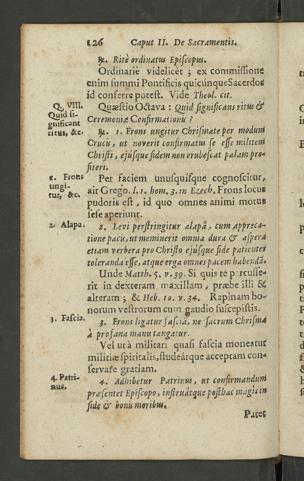 126 Caput II. De Sacramentis.
℞. Ritè ordinatus Episcopus.
Ordinariè videlicet; ex commissione
enim summi Pontificis quicunque Sacerdos
id conferre potest. Vide Theol. cit.
Q. VIII.
Quid si-
gnificant
ritus, &c.
Quæstio Octava: Quid significant ritus &
Ceremoniæ Confirmationis?
℞. 1. Frons ungitur Chrismate per modum
Crucis, ut noverit confirmatus se esse militem
Christi, ejúsque fidem non erubescat palam pro-
fiteri.
1. Frons
ungi-
tur, &c.
Per faciem unusquisque cognoscitur,
ait Grego. l. 1. hom. 3. in Ezech. Frons locus
pudoris est, id quo omnes animi motus
sese aperiunt.
2. Alapa.
2. Levi perstringitur alapâ, cum appreca-
tione pacis, ut meminerit omnia dura & aspera
etiam verbera pro Christo ejúsque fide patienter
toleranda esse, atque erga omnes pacem habendā.
Unde Matth. 5. v. 39. Si quis te percusse-
rit in dexteram maxillam, præbe illi &
alteram; & Heb. 10. v. 34. Rapinam bo-
norum vestrorum cum gaudio suscepistis.
3. Fascia.
3. Frons ligatur fasciâ, ne sacrum Chrisma
à profana manu tangatur.
Vel utà militari quasi fascia moneatur
militiæ spiritalis, studeátque acceptam con-
servare gratiam.
4. Patri-
nus.
4. Adhibetur Patrinus, ut confirmandum
præsentet Episcopo, instruátque posthac magis in
fide & bonis moribus.
Patet